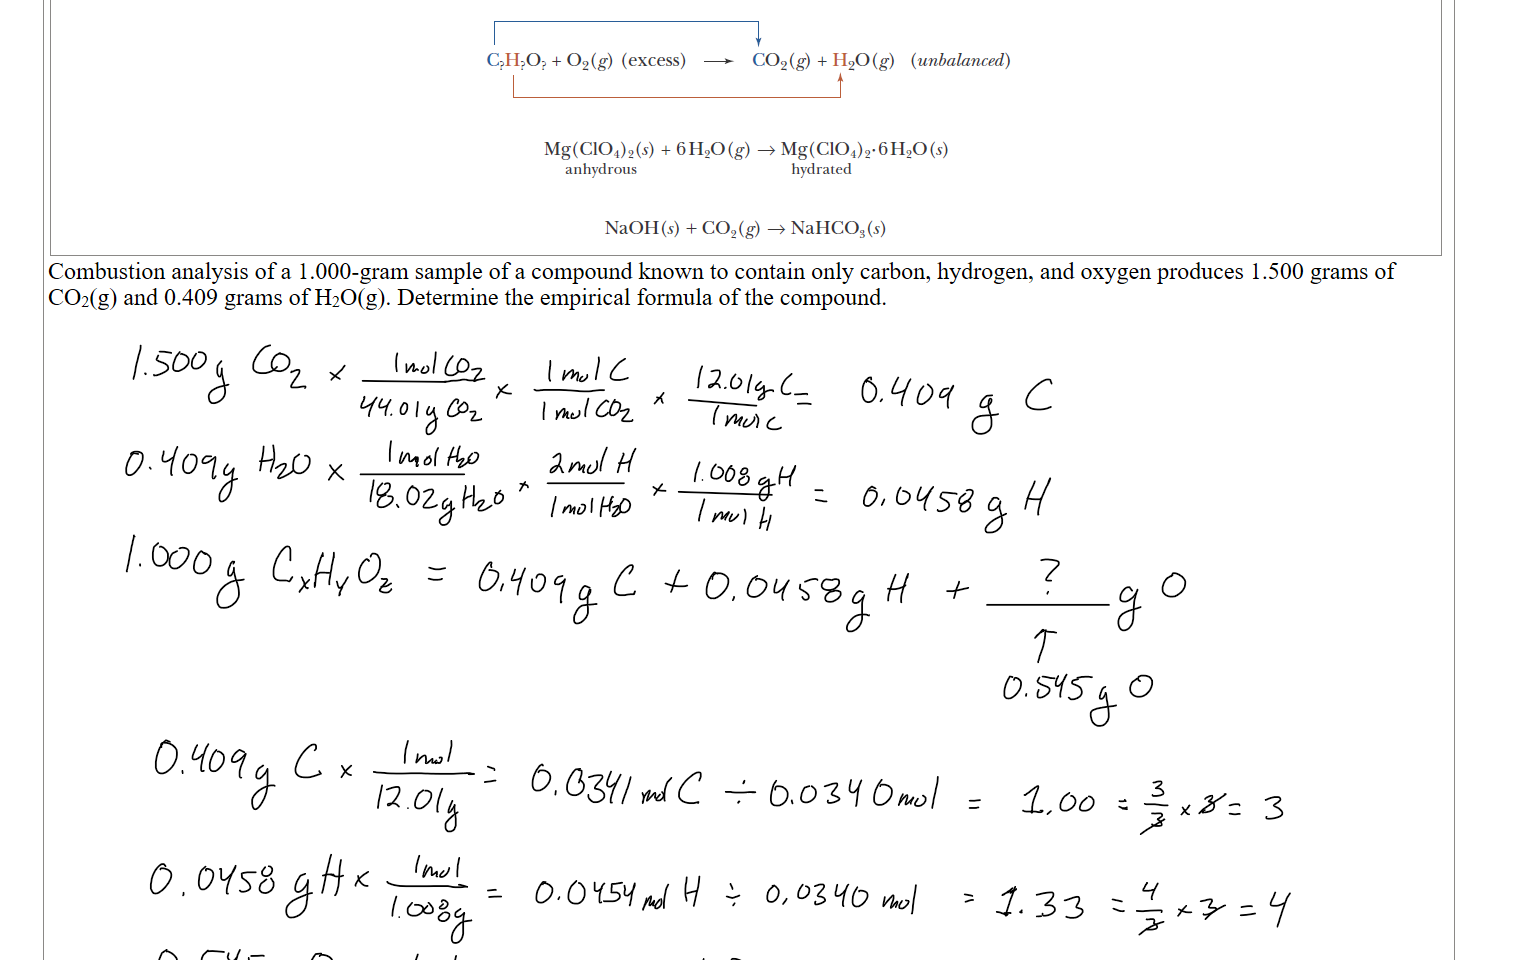 C?H?O? + O₂(g) (excess) ⟶ CO₂(g) + H₂O(g) (unbalanced)
Mg(ClO₄)₂(s) + 6H₂O(g) → Mg(ClO₄)₂·6H₂O(s)
anhydrous hydrated
NaOH(s) + CO₂(g) → NaHCO₃(s)
Combustion analysis of a 1.000-gram sample of a compound known to contain only carbon, hydrogen, and oxygen produces 1.500 grams of
CO₂(g) and 0.409 grams of H₂O(g). Determine the empirical formula of the compound.
1.500g CO₂ × 1 mol CO₂ / 44.01g CO₂ × 1 mol C / 1 mol CO₂ × 12.01g C / 1 mol C = 0.409 g C
0.409g H₂O × 1 mol H₂O / 18.02g H₂O × 2 mol H / 1 mol H₂O × 1.008 g H / 1 mol H = 0.0458 g H
1.000g CₓHᵧO_z = 0.409g C + 0.0458g H + ? g O
↑
0.545g O
0.409g C × 1 mol / 12.01g = 0.0341 mol C ÷ 0.0340 mol = 1.00 = 3/3 × 3 = 3
0.0458 g H × 1 mol / 1.008g = 0.0454 mol H ÷ 0.0340 mol = 1.33 = 4/3 × 3 = 4